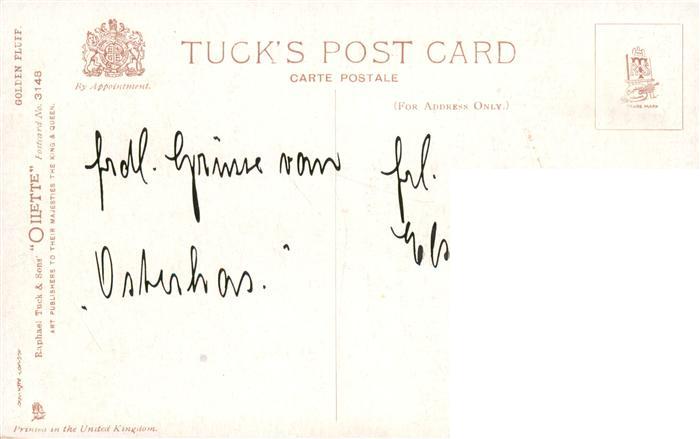 TUCK'S POST CARD
CARTE POSTALE
By Appointment.
(FOR ADDRESS ONLY.)
TRADE MARK
GOLDEN FLUFF.
Raphael Tuck & Sons' "OILETTE" Postcard No. 3148
ART PUBLISHERS TO THEIR MAJESTIES THE KING & QUEEN.
frdl. Grüsse vom
„Osterhas."
frl.
Els
Printed in the United Kingdom.